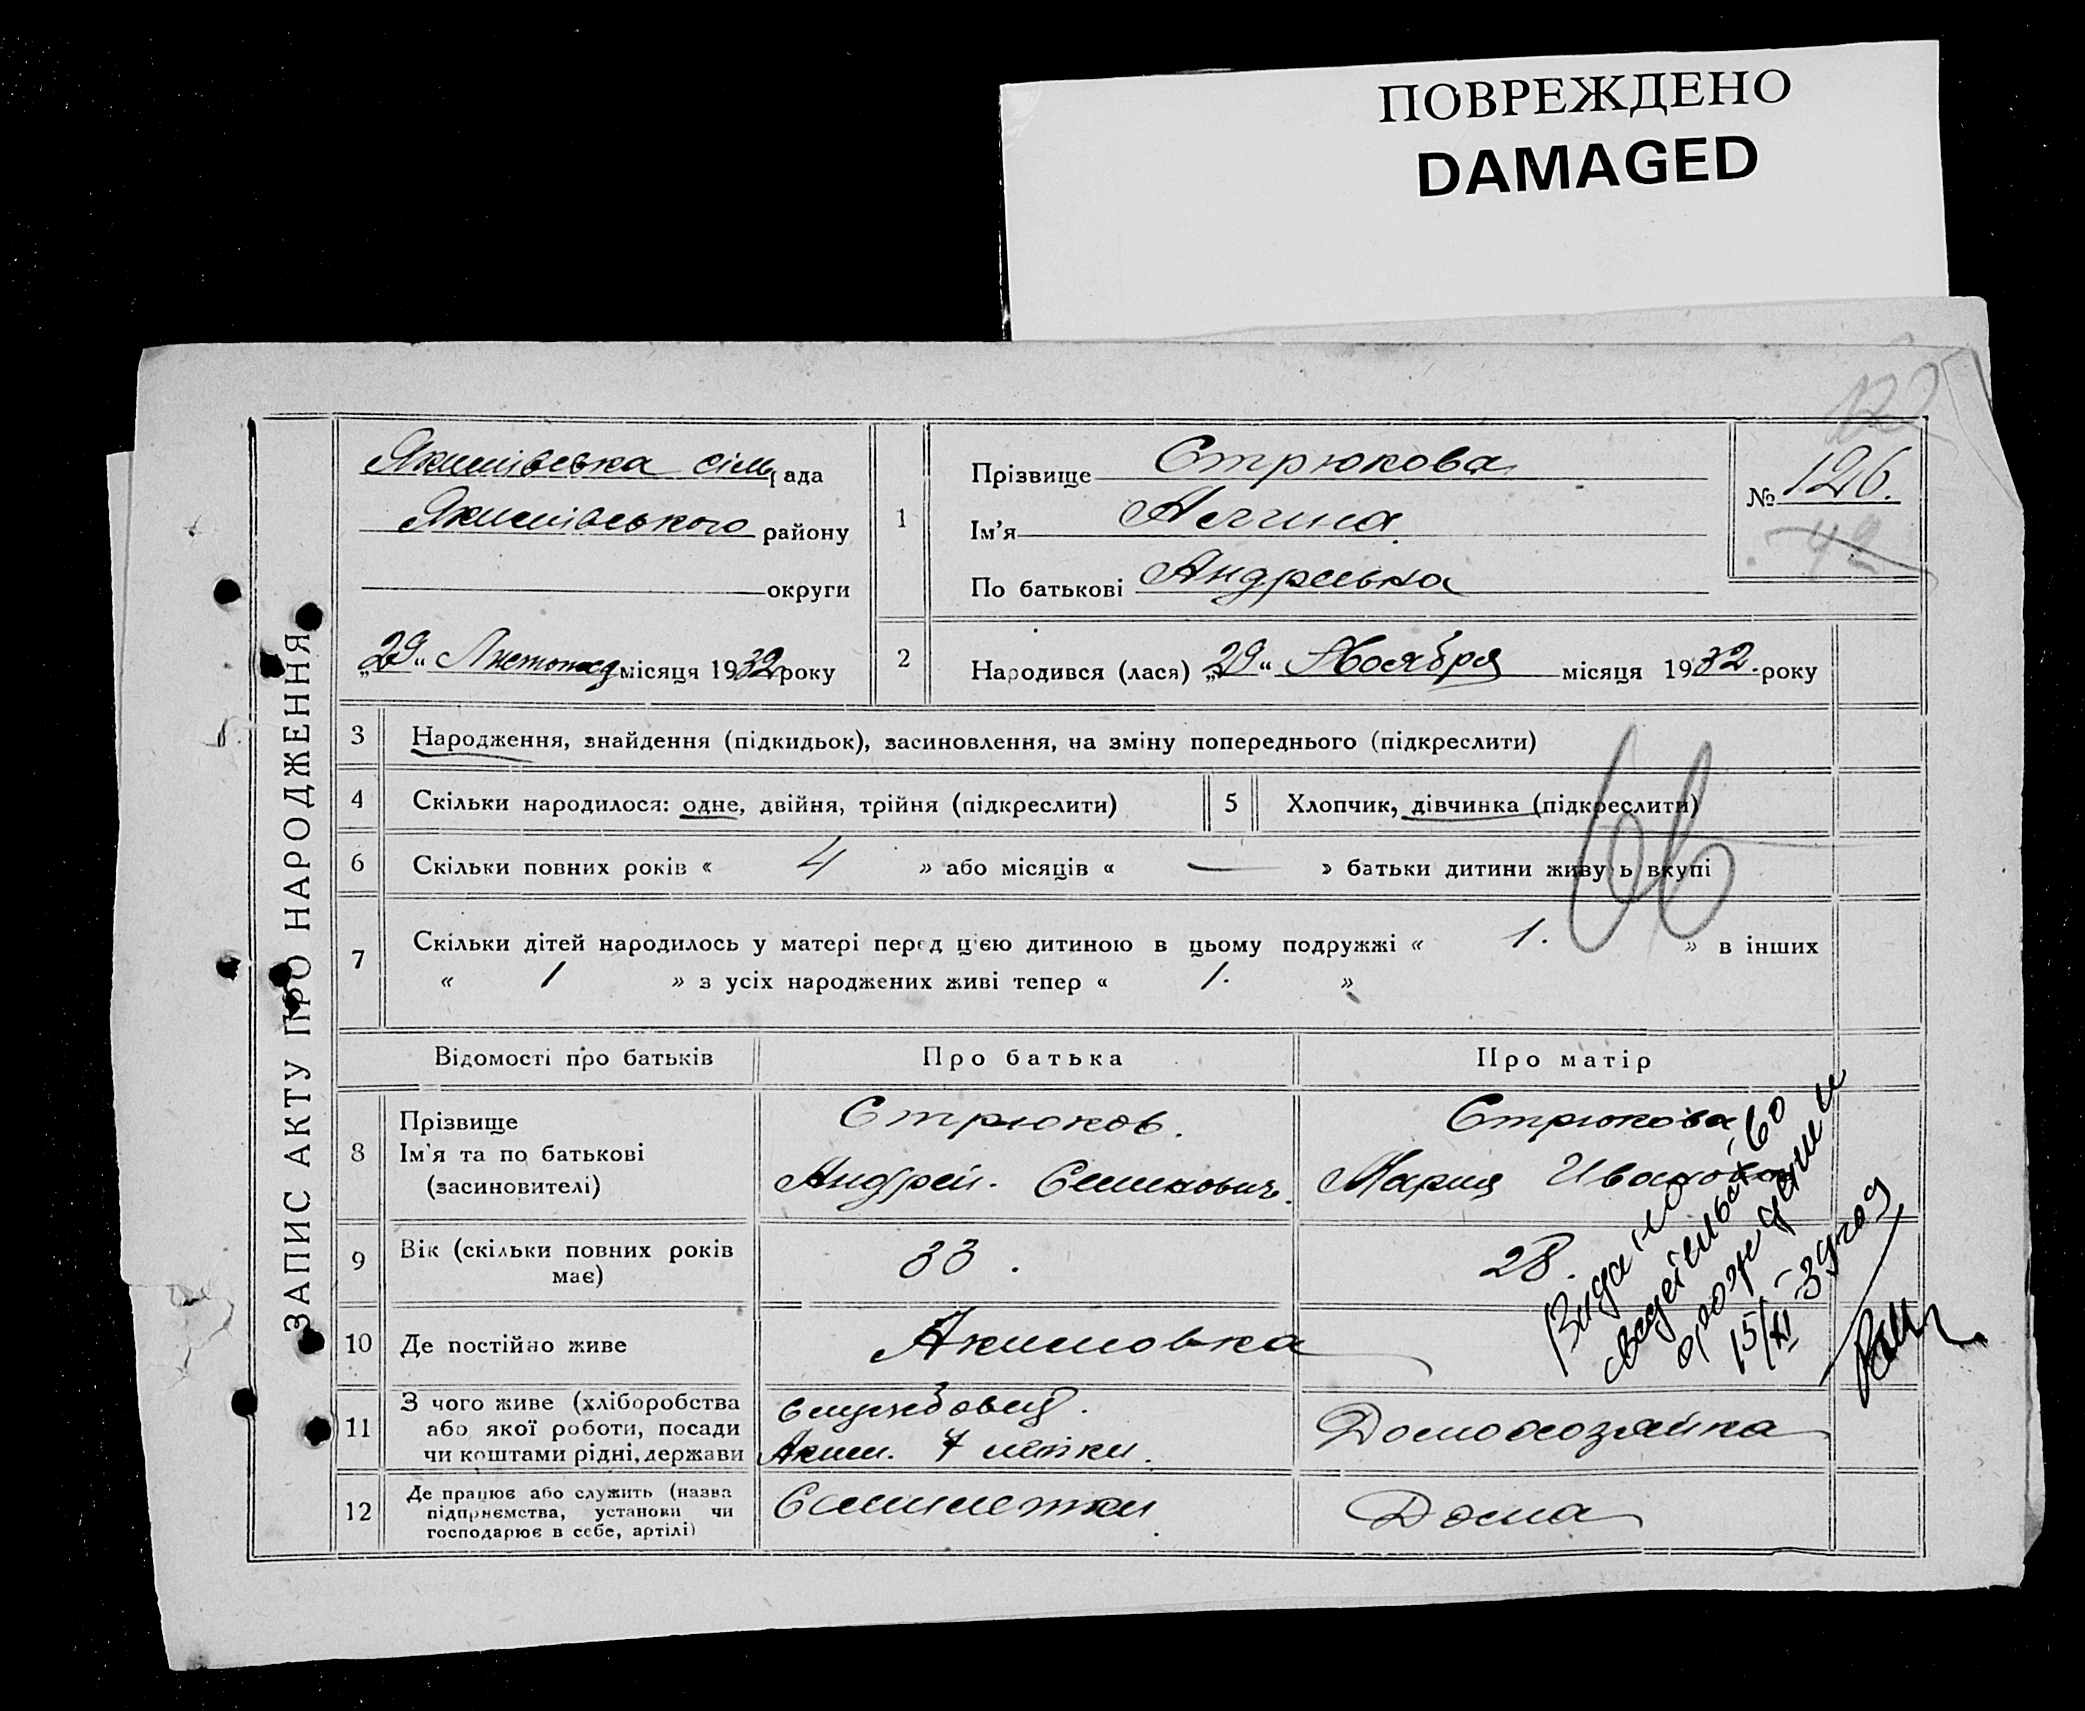 ПОВРЕЖДЕНО
DAMAGED
ЗАПИС АКТУ ПРО НАРОДЖЕННЯ
122
Якимівська сільрада
Якимівського району
округи
„29“ Листопад місяця 1932 року
1
Прізвище Стрюкова
Ім’я
По батькові Андреевна
№ 126.
42
2
Народився (лася) „29“ Ноября місяця 1932. року
3 Народження, знайдення (підкидьок), засиновлення, на зміну попереднього (підкреслити)
4 Скільки народилося: одне, двійня, трійня (підкреслити)
5 Хлопчик, дівчинка (підкреслити)
6 Скільки повних років « 4 » або місяців « — » батьки дитини живуть вкупі
7 Скільки дітей народилось у матері перед цією дитиною в цьому подружжі « 1. » в інших
« 1 » з усіх народжених живі тепер « 1. »
Відомості про батьків Про батька Про матір
8 Прізвище
Ім’я та по батькові
(засиновителі)
Стрюков.
Андрей. Семенович.
Стрюкова
Мария Ивановна
9 Вік (скільки повних років
має)
33.
28.
10 Де постійно живе
Акимовка
11 З чого живе (хліборобства
або якої роботи, посади
чи коштами рідні, держави
службовец.
Аким. 7 летки.
Домохозяйка
12 Де працює або служить (назва
підприємства, установи чи
господарює в себе, артілі)
Семилетки
Дома
Видано
свидетельство
о рождении
15/XI-39 год